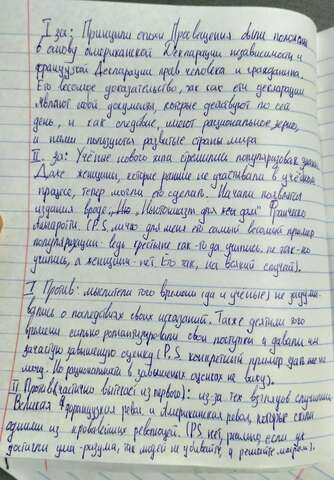 I за: Принципы эпохи Просвещения были положены
в основу американской Декларации независимости и
французской Декларации прав человека и гражданина.
Это весомое доказательство, так как эти декларации
являют собой документы, которые действуют по сей
день, и как следствие, имеют рациональное зерно,
и ими пользуются развитые страны мира
II. за: Учёные нового типа стремились популяризовать знания.
Даже женщины, которые раньше не участвовали в учебном
процессе, теперь могли это сделать. Начали появляться
издания вроде „Ньютонизм для дам" Франческо
Альгаротти. (P.S. лично для меня это самый весомый пример
популяризации: ведь крестьяне как-то да учились, не так-но
учились, а женщины - нет. Это так, на всякий случай).
I Против: мыслители того времени (да и учёные) не задумы-
вались о последствиях своих исканий. Также деятели того
времени сильно романтизировали свои поступки и давали им
зачастую завышенную оценку (P.S. конкретный пример дать не
могу. Но рациональность в завышенных оценках не вижу).
II Против (частично вытекает из первого): из-за тех взглядов случились
Великая французская револ. и Американская револ., которые стали
одними из кровавейших революций. (P.S. нет, реально если уж
достигли ума-разума, так людей не убивайте, а решайте миром).